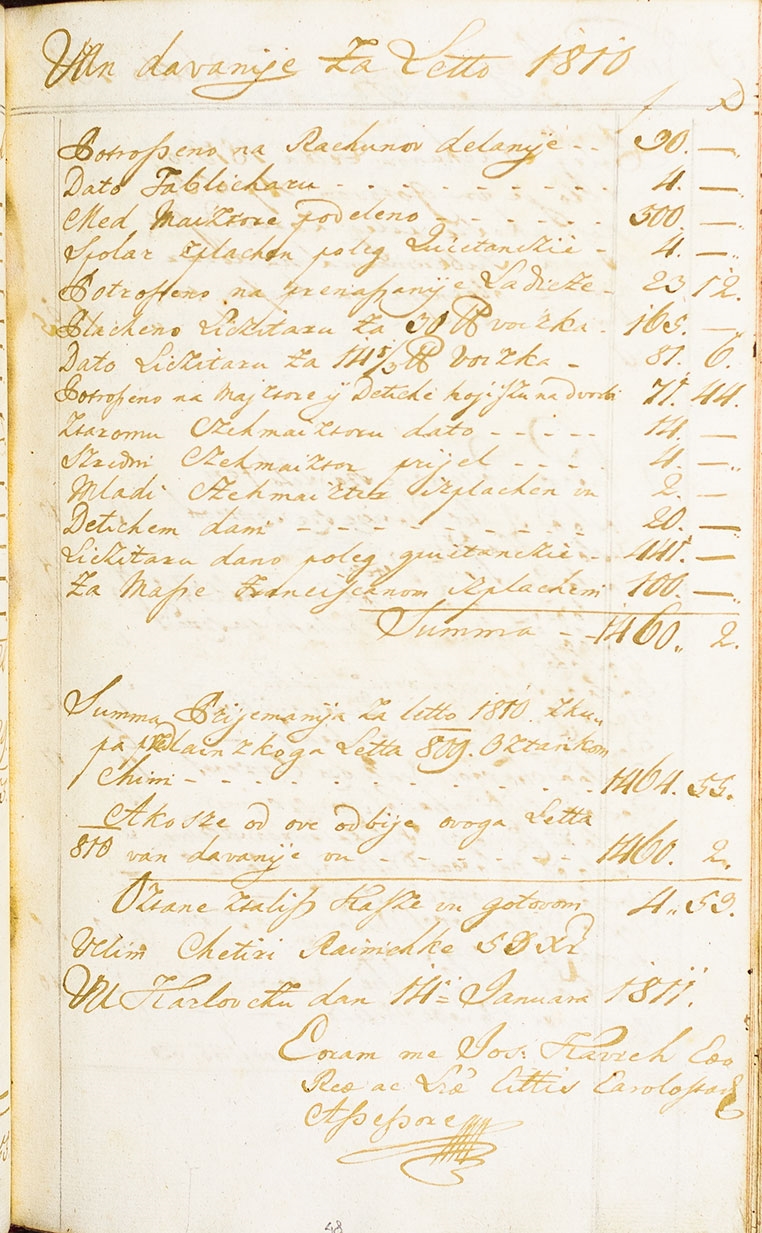 Van davanije za Letto 1810
f D
Potrosseno na Rachunov delanije - - 30. —„
Dato Tablicharu - - - - - - - - - 4. —„
Med Maisztore podeleno - - - - - - 500 —„
Spolar izplachen poleg Quietanczie - 4. —„
Potrosseno na prenassanije Ladicze - 23 12.
Placheno Liczitaru za 30 ℔ voszka - 165. —„
Dato Liczitaru za 14 ℔ Voszka - 81. 6.
Potrosseno na Majsztore ij Detiche koji szu na Dvorbi 71. 44.
Ztaromu Czehmaisztoru dato - - - - - 14. —
Szredni Czehmaisztor prijel - - - - 4. —„
Mladi Czehmaiszter izplachen vu 2. —
Detichem dani - - - - - - - - - 20. —„
Liczitaru dano poleg quietanczie - 441. —
Za Masse Franciscanom izplacheni 100. —„
Summa - - 1460„ 2.
Summa Prijemanija za letto 1810. zku„
pa predlainzkoga Letta 809. Oztankom
Chini - - - - - - - - - - 1464. 55.
Ako sze od ove odbije ovoga Letta
810 van davanije vu - - - - - - 1460. 2.
Oztane vu gotovom 4„ 53.
Velim Chetiri Rainichke 53 Xr
Vu Karlovczu dan 14 Januara 1811.
Coram me Jos:
Reæ ac Lræ Cittis Carolostad
Assessore
48